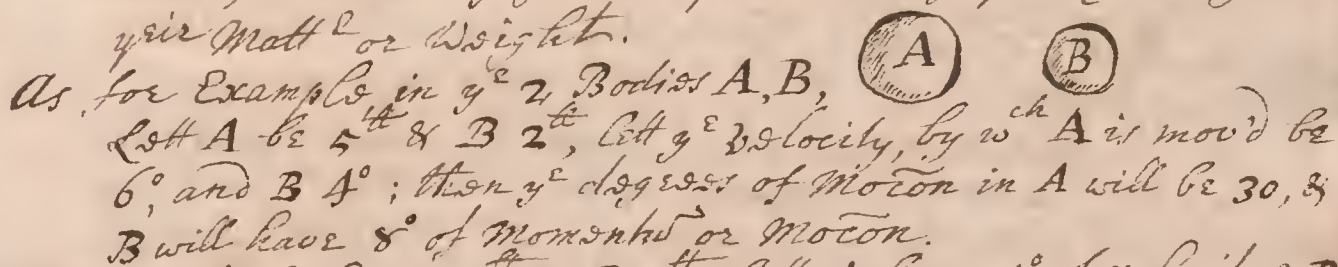 yeir Matte or Weight. A B
As for Example in ye 2 Bodies A, B,
Lett A be 5tt & B 2tt, lett ye Velocity, by wch A is mov'd be
6°, and B 4°; then ye degrees of Mocōn in A will be 30, &
B will have 8° of Momentū or Mocōn.